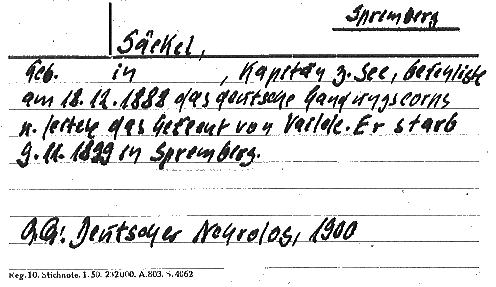 Spremberg
Säckel,
Geb. in , Kapitän z. See, befehligte
am 18.12.1888 das deutsche Landungscorps
u. leitete das Gefecht von Vailele. Er starb
9.11.1899 in Spremberg.
Deutscher Nekrolog, 1900
Reg. 10. Stichnote. 1. 50. A.803. S.4062